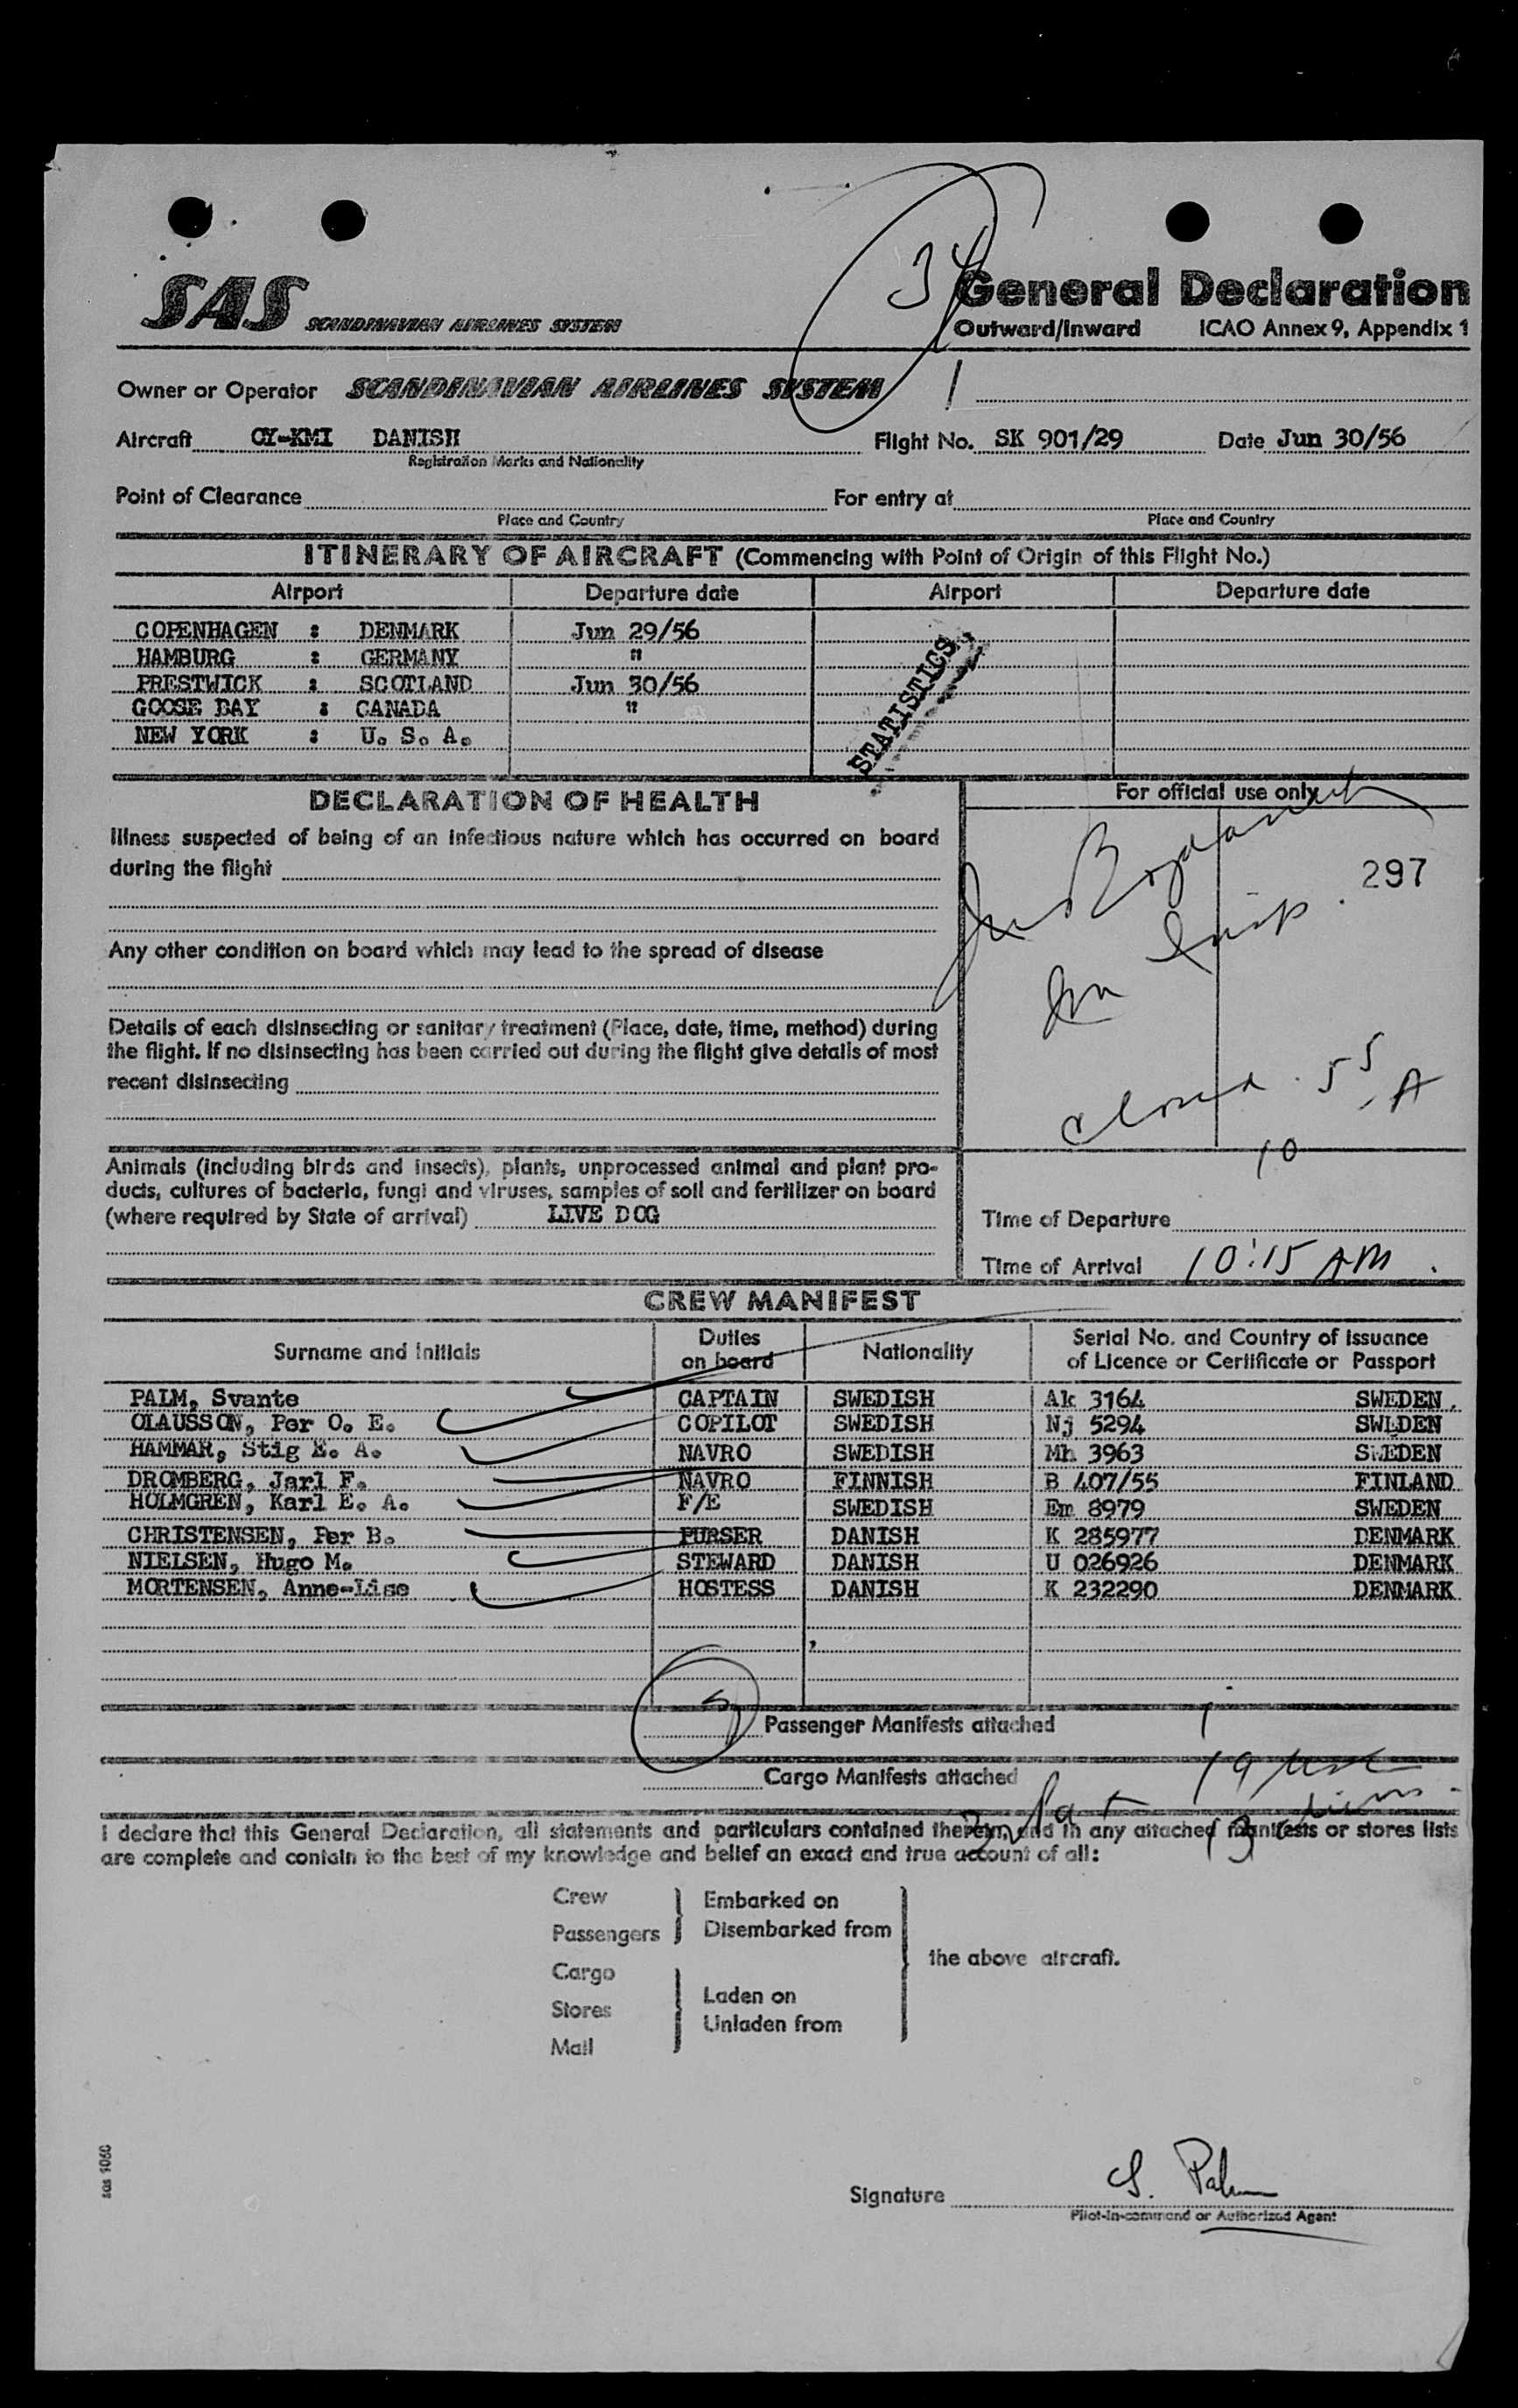 34
SAS SCANDINAVIAN AIRLINES SYSTEM
General Declaration
Outward/Inward ICAO Annex 9, Appendix 1
Owner or Operator SCANDINAVIAN AIRLINES SYSTEM
Aircraft OY-KMI DANISH Flight No. SK 901/29 Date Jun 30/56
Registration Marks and Nationality
Point of Clearance For entry at
Place and Country Place and Country
ITINERARY OF AIRCRAFT (Commencing with Point of Origin of this Flight No.)
Airport Departure date Airport Departure date
COPENHAGEN : DENMARK Jun 29/56
HAMBURG : GERMANY "
PRESTWICK : SCOTLAND Jun 30/56
GOOSE BAY : CANADA "
NEW YORK : U. S. A.
STATISTICS
DECLARATION OF HEALTH
For official use only
Illness suspected of being of an infectious nature which has occurred on board
during the flight
297
Any other condition on board which may lead to the spread of disease
Details of each disinsecting or sanitary treatment (Place, date, time, method) during
the flight. If no disinsecting has been carried out during the flight give details of most
recent disinsecting
closed 55 A
10
Animals (including birds and insects), plants, unprocessed animal and plant pro-
ducts, cultures of bacteria, fungi and viruses, samples of soil and fertilizer on board
(where required by State of arrival) LIVE DOG
Time of Departure
Time of Arrival 10:15 AM
CREW MANIFEST
Surname and Initials Duties on board Nationality Serial No. and Country of Issuance of Licence or Certificate or Passport
PALM, Svante CAPTAIN SWEDISH Ak 3164 SWEDEN
OLAUSSON, Per O. E. COPILOT SWEDISH Nj 5294 SWEDEN
HAMMAR, Stig E. A. NAVRO SWEDISH Mh 3963 SWEDEN
DROMBERG, Jarl F. NAVRO FINNISH B 407/55 FINLAND
HOLMGREN, Karl E. A. F/E SWEDISH Em 8979 SWEDEN
CHRISTENSEN, Per B. PURSER DANISH K 285977 DENMARK
NIELSEN, Hugo M. STEWARD DANISH U 026926 DENMARK
MORTENSEN, Anne-Lise HOSTESS DANISH K 232290 DENMARK
Passenger Manifests attached
Cargo Manifests attached
I declare that this General Declaration, all statements and particulars contained therein, and in any attached manifests or stores lists
are complete and contain to the best of my knowledge and belief an exact and true account of all:
Crew
Passengers
Embarked on
Disembarked from
the above aircraft.
Cargo
Stores
Mail
Laden on
Unladen from
sas 1060
Signature S. Palm
Pilot-in-command or Authorized Agent